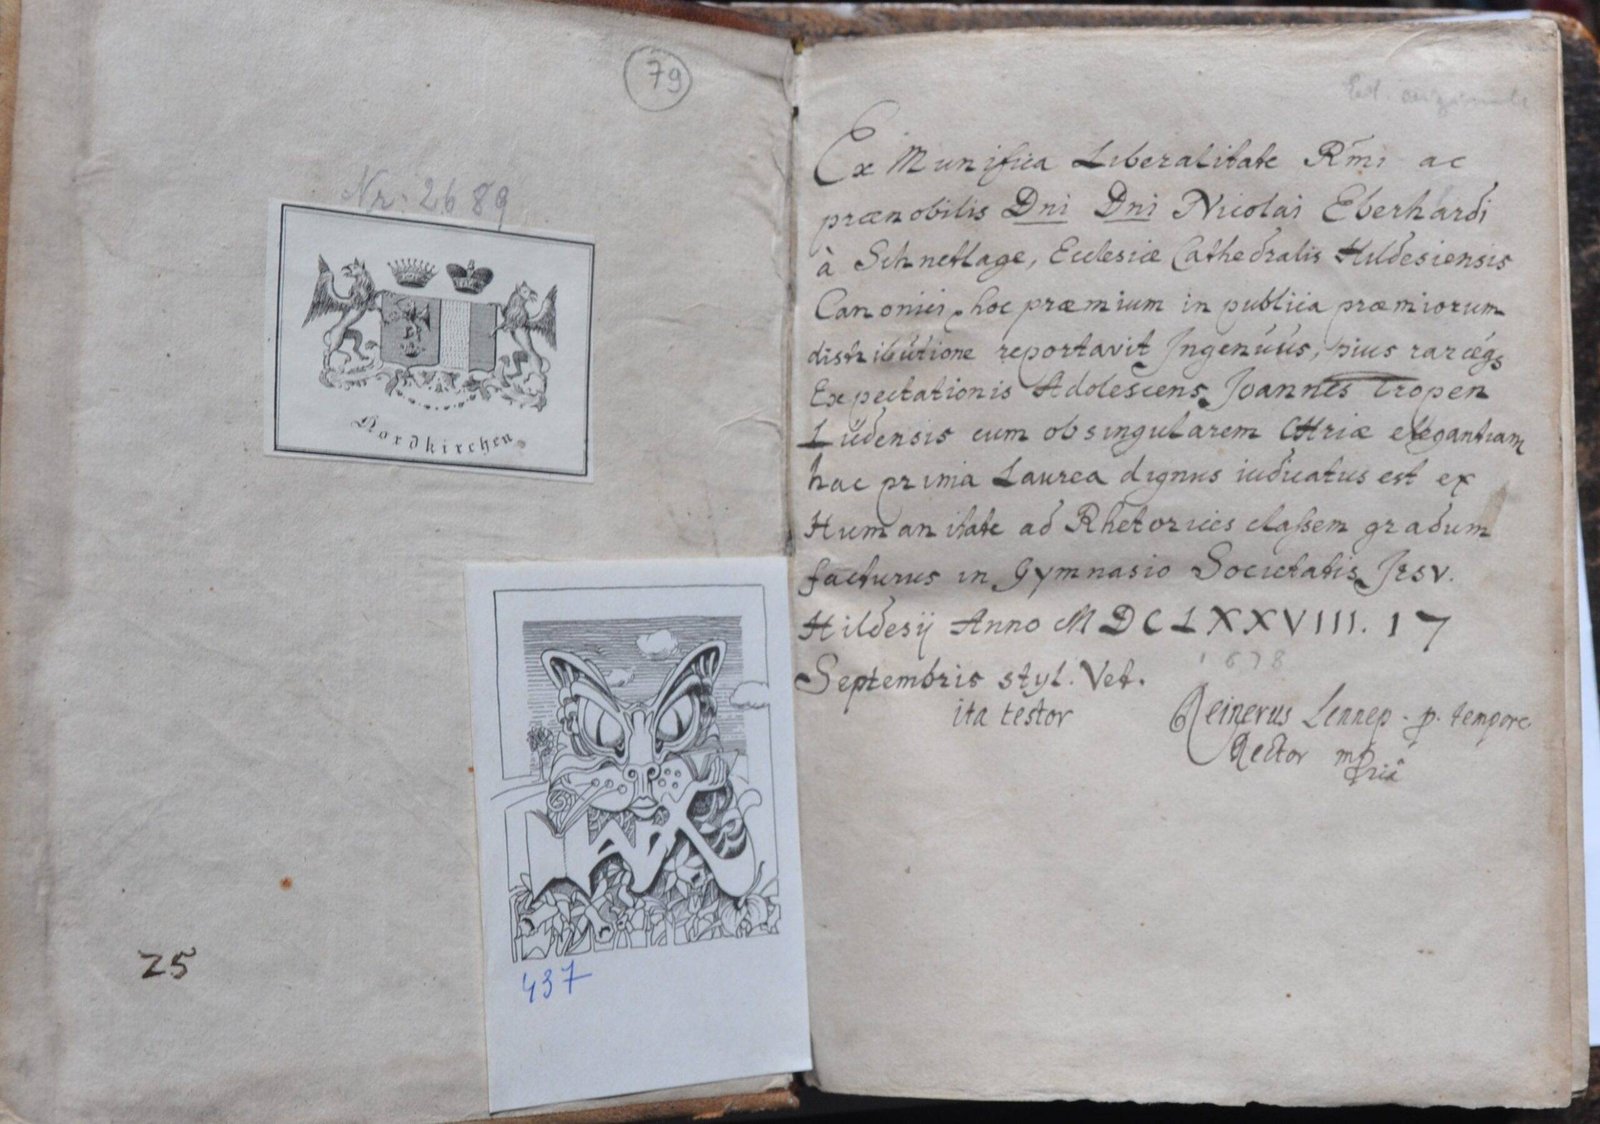 79
Nr: 2689
Nordkirchen
MAX
437
25
Ed. originale
Ex Munifica Liberalitate Rmi ac
prænobilis Dni Dni Nicolai Eberhardi
à Schnetlage, Ecclesiæ Cathedralis Hildesiensis
Canonici hoc præmium in publica præmiorum
distributione reportavit Ingenuus, pius raræqs
Expectationis Adolescens Joannes Tropen
Ludensis cum ob singularem elegantiam
hac prima Laurea dignus iudicatus est ex
Humanitate ad Rhetorices classem gradum
facturus in Gymnasio Societatis Jesv.
Hildesij Anno MDCLXXVIII. 17
1678
Septembris styl. Vet.
ita testor Reinerus Lennep. p. tempore
Rector mpria